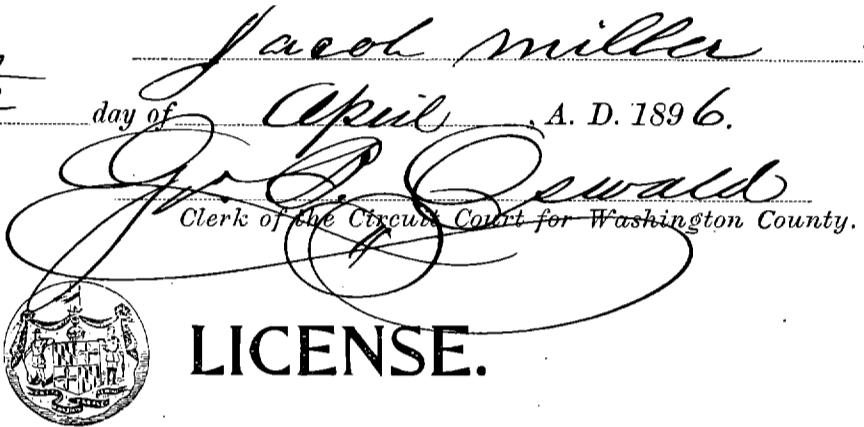 Jacob Miller
day of April, A. D. 1896.
Geo. B. Oswald
Clerk of the Circuit Court for Washington County.
LICENSE.